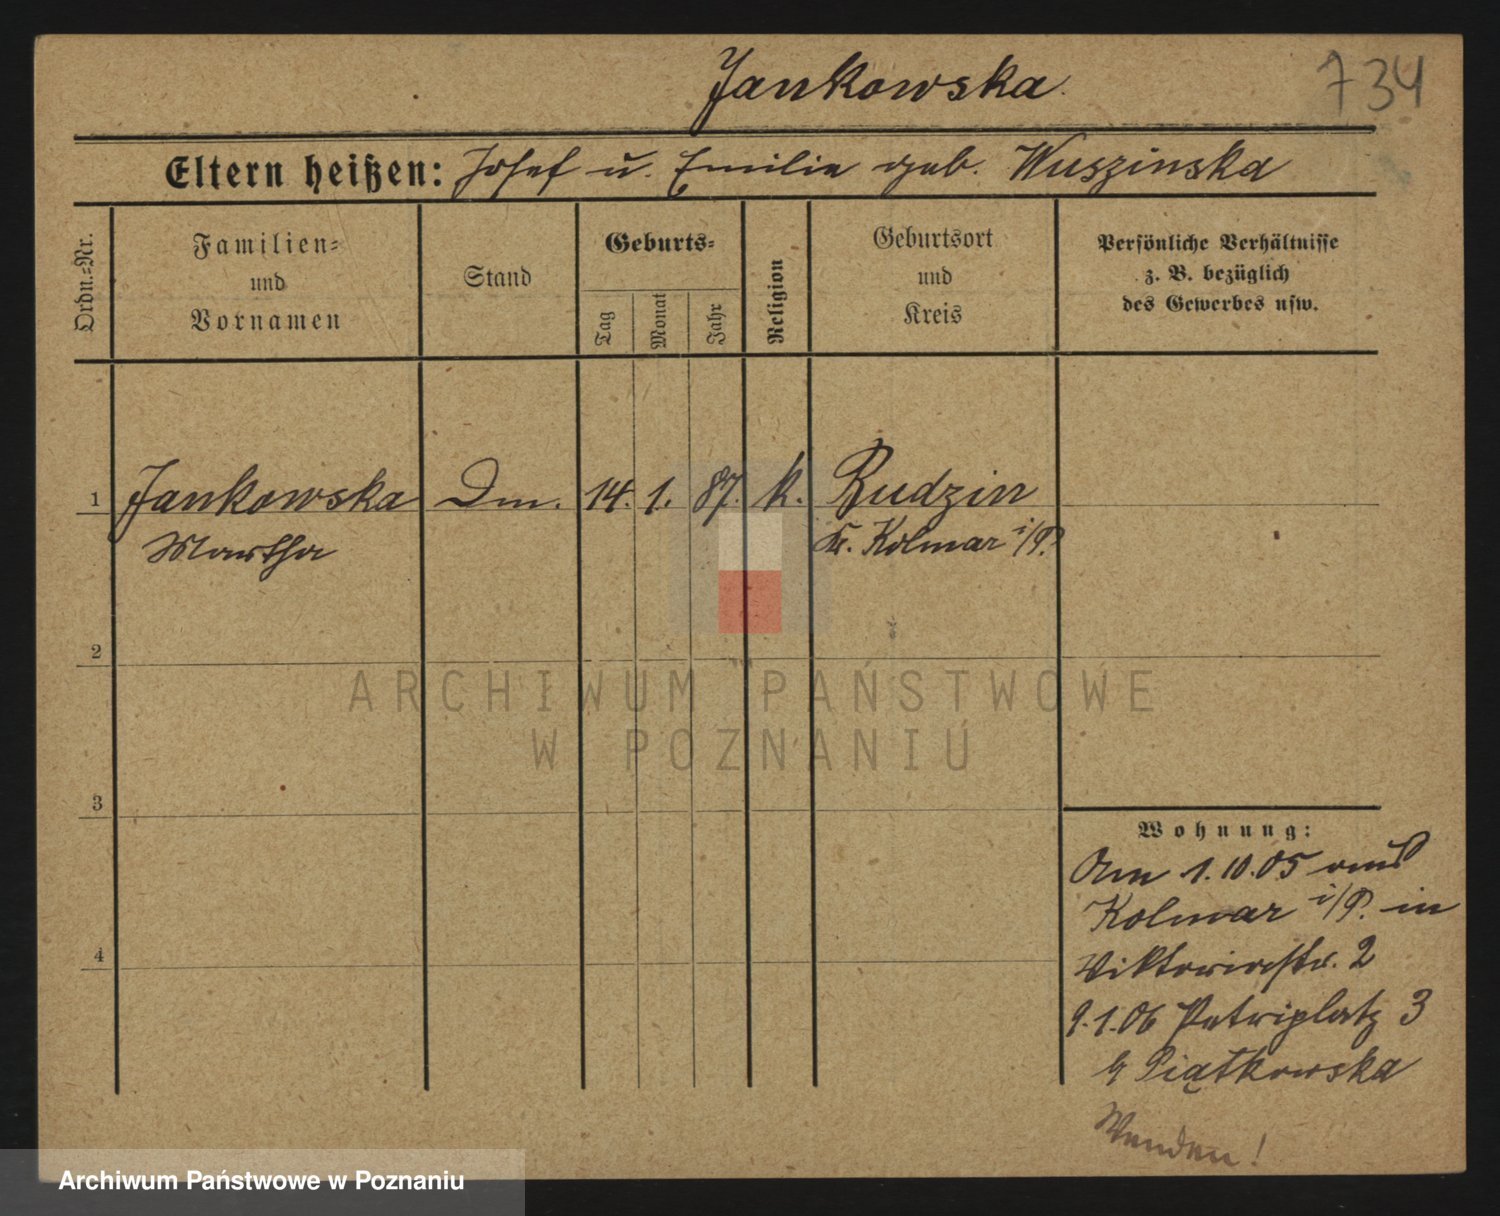 Jankowska
734
Eltern heißen: Josef u. Emilie geb. Wuszinska
Ordn.-Nr.
Familien-
und
Vornamen
Stand
Geburts-
Tag
Monat
Jahr
Religion
Geburtsort
und
Kreis
Persönliche Verhältnisse
z. B. bezüglich
des Gewerbes usw.
1 Jankowska Dm. 14. 1. 87. k. Budzin
Martha Kr. Kolmar i/P.
2
ARCHIWUM PAŃSTWOWE
W POZNANIU
3
Wohnung:
Am 1.10.05 aus
Kolmar i/P. in
Viktoriastr. 2
9.1.06 Petriplatz 3
b Piątkowska
Wenden!
4
Archiwum Państwowe w Poznaniu